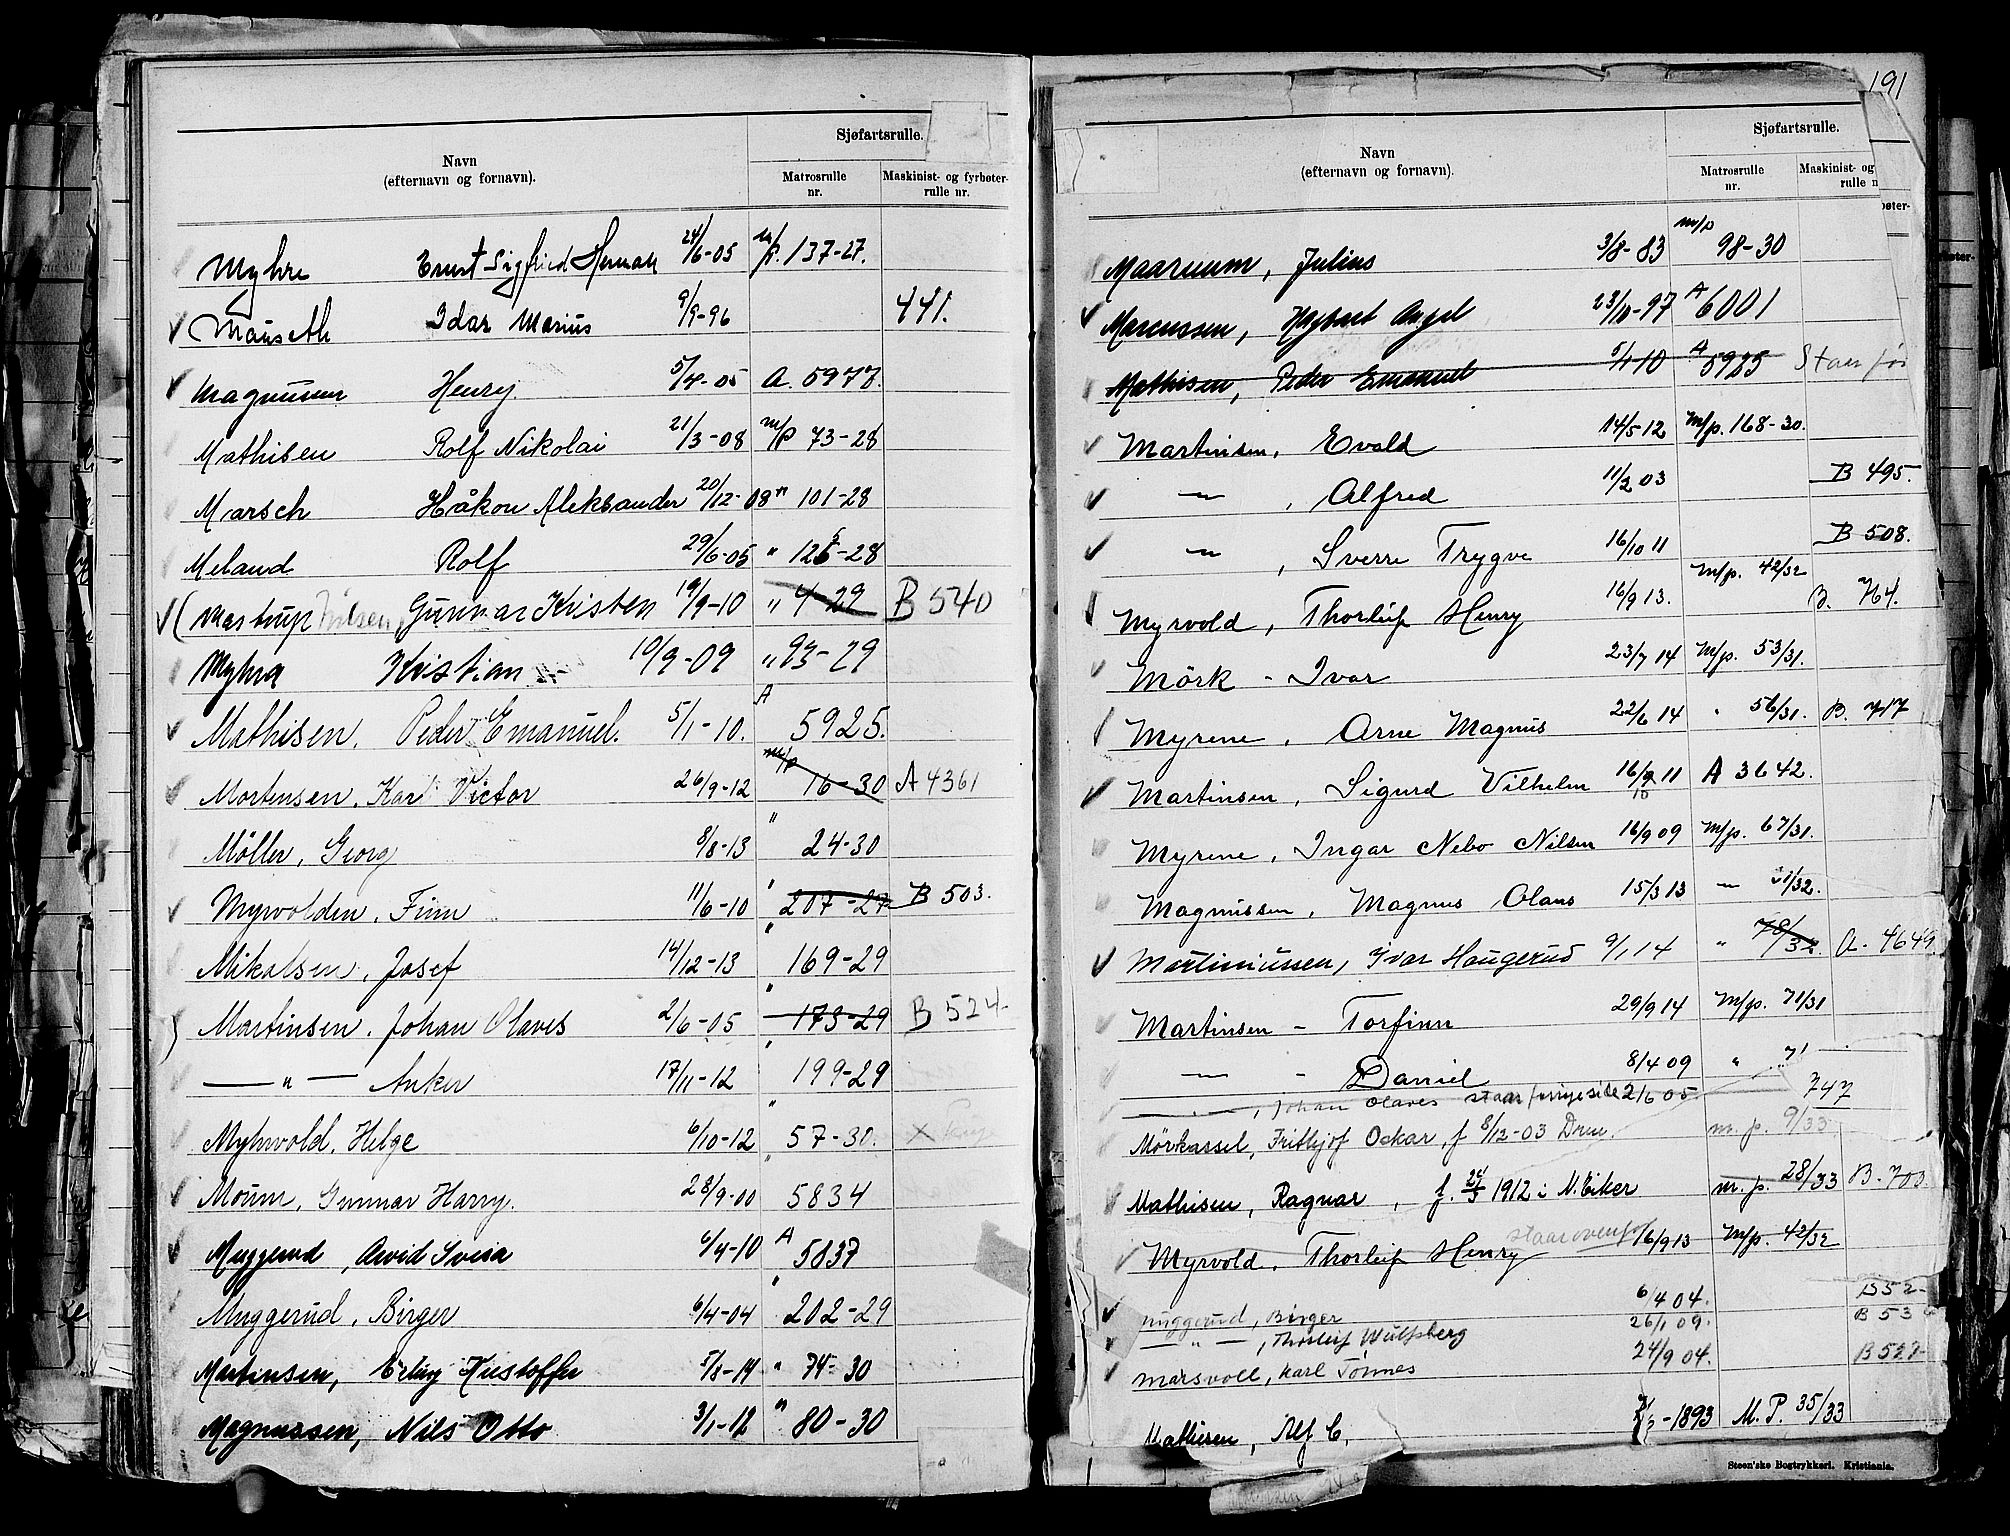 Navn
(efternavn og fornavn).
Sjøfartsrulle.
Matrosrulle nr.
Maskinist- og fyrbøter-rulle nr.
Myhre Ernst Sigfried Herman 24/6-05 m/p. 137-27.
Mauseth Idar Marius 9/9-96 441.
Magnussen Henry 5/4-05 A. 5977.
Mathisen Rolf Nikolai 21/3-08 m/p 73-28
Marsch Håkon Aleksander 20/12-08 " 101-28
Meland Rolf 29/6-05 " 126-28
(Mastrup Gunnar Kristen 19/9-10 " 4-29 B 540
Myhra Kristian 10/9-09 " 93-29
Mathisen, Peder Emanuel. 5/1-10. A 5925.
Mortensen, Karl Victor 26/9-12 m/p 16-30 A 4361
Möller, Georg 8/8-13 " 24-30
Myrvolden, Finn 11/6-10 " 207-27 B 503.
Mikalsen, Josef 14/12-13 " 169-29
Martinsen, Johan Olaves 2/6-05 " 173-29 B 524
— " — Anker 17/11-12 " 199-29
Myhrvold, Helge 6/10-12 " 57-30. x
Moum, Gunnar Harry. 28/9-00 " 5834
Muggerud, Arvid Svea 6/4-10 A 5837
Muggerud, Birger 6/4-04 " 202-29
Martinsen, Erling Kristoffer 5/8-14 " 74-30
Magnussen, Nils Otto 3/1-12 " 80-30
191
Navn
(efternavn og fornavn).
Sjøfartsrulle.
Matrosrulle nr.
Maskinist- og
rulle n
bøter-
Maaruum, Julius 3/8-83 m/p 98-30
Marcussen, Angel 23/10-97 A 6001
Mathisen, Peder Emanuel 5/1-10 A 5925 Staar før
Martinsen, Evald 14/5 12 M/p. 168-30.
—, Alfred 11/2 03 B 495.
—, Sverre Trygve 16/10 11 B 508.
Myrvold, Thorleif Henry 16/9 13. M/p. 42/32 B. 764.
Mörk - Ivar 23/7 14 M/p. 53/31.
Myrene, Arne Magnus 22/6 14 " 56/31. B. 717
Martinsen, Sigurd Vilhelm 16/10 11 A 3642.
Myrene, Ingar Nebo Nilsen 16/9 09 M/p. 67/31.
Magnussen, Magnus Olaus 15/3 13 — 31/32.
Martiniussen, Ivar Haugerud 9/1 14 " 78/32 A. 4649.
Martinsen - Torfinn 29/9 14 M/p. 71/31
— - Daniel 8/4 09 " 71
— " —, Johan Olaves staar forrige side 2/6 05. 747
Mörkassel, Frithjof Oskar, f 8/12-03 Drm. m. p. 9/33.
Mathisen, Ragnar, f. 24/5 1912 i N. Eiker m. p. 28/33 B. 703
Myrvold, Thorleif Henry staar ovenfor 16/9 13 M/p. 42/32
Muggerud, Birger 6/4 04. B 52
— " —, Thorleif Wulfsberg 26/1 09. B 53
Marsvoll, Karl Tönnes 24/9 04. B 527
Mathiesen, Alf C. -1893 M. P. 35/33
Steen'ske Bogtrykkeri. Kristiania.